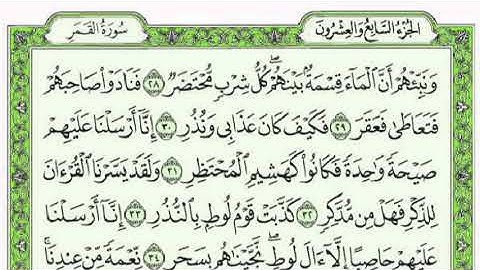 الجزء السابع والعشرون
سورة القمر
وَنَبِّئْهُمْ أَنَّ الْمَآءَ قِسْمَةٌۢ بَيْنَهُمْ ۖ كُلُّ شِرْبٍ مُّحْتَضَرٌ ۝٢٨ فَنَادَوْا۟ صَاحِبَهُمْ
فَتَعَاطَىٰ فَعَقَرَ ۝٢٩ فَكَيْفَ كَانَ عَذَابِى وَنُذُرِ ۝٣٠ إِنَّآ أَرْسَلْنَا عَلَيْهِمْ
صَيْحَةً وَٰحِدَةً فَكَانُوا۟ كَهَشِيمِ الْمُحْتَظِرِ ۝٣١ وَلَقَدْ يَسَّرْنَا الْقُرْءَانَ
لِلذِّكْرِ فَهَلْ مِن مُّدَّكِرٍ ۝٣٢ كَذَّبَتْ قَوْمُ لُوطٍۭ بِالنُّذُرِ ۝٣٣ إِنَّآ أَرْسَلْنَا
عَلَيْهِمْ حَاصِبًا إِلَّآ ءَالَ لُوطٍ ۖ نَّجَّيْنَٰهُم بِسَحَرٍ ۝٣٤ نِّعْمَةً مِّنْ عِندِنَا ۚ